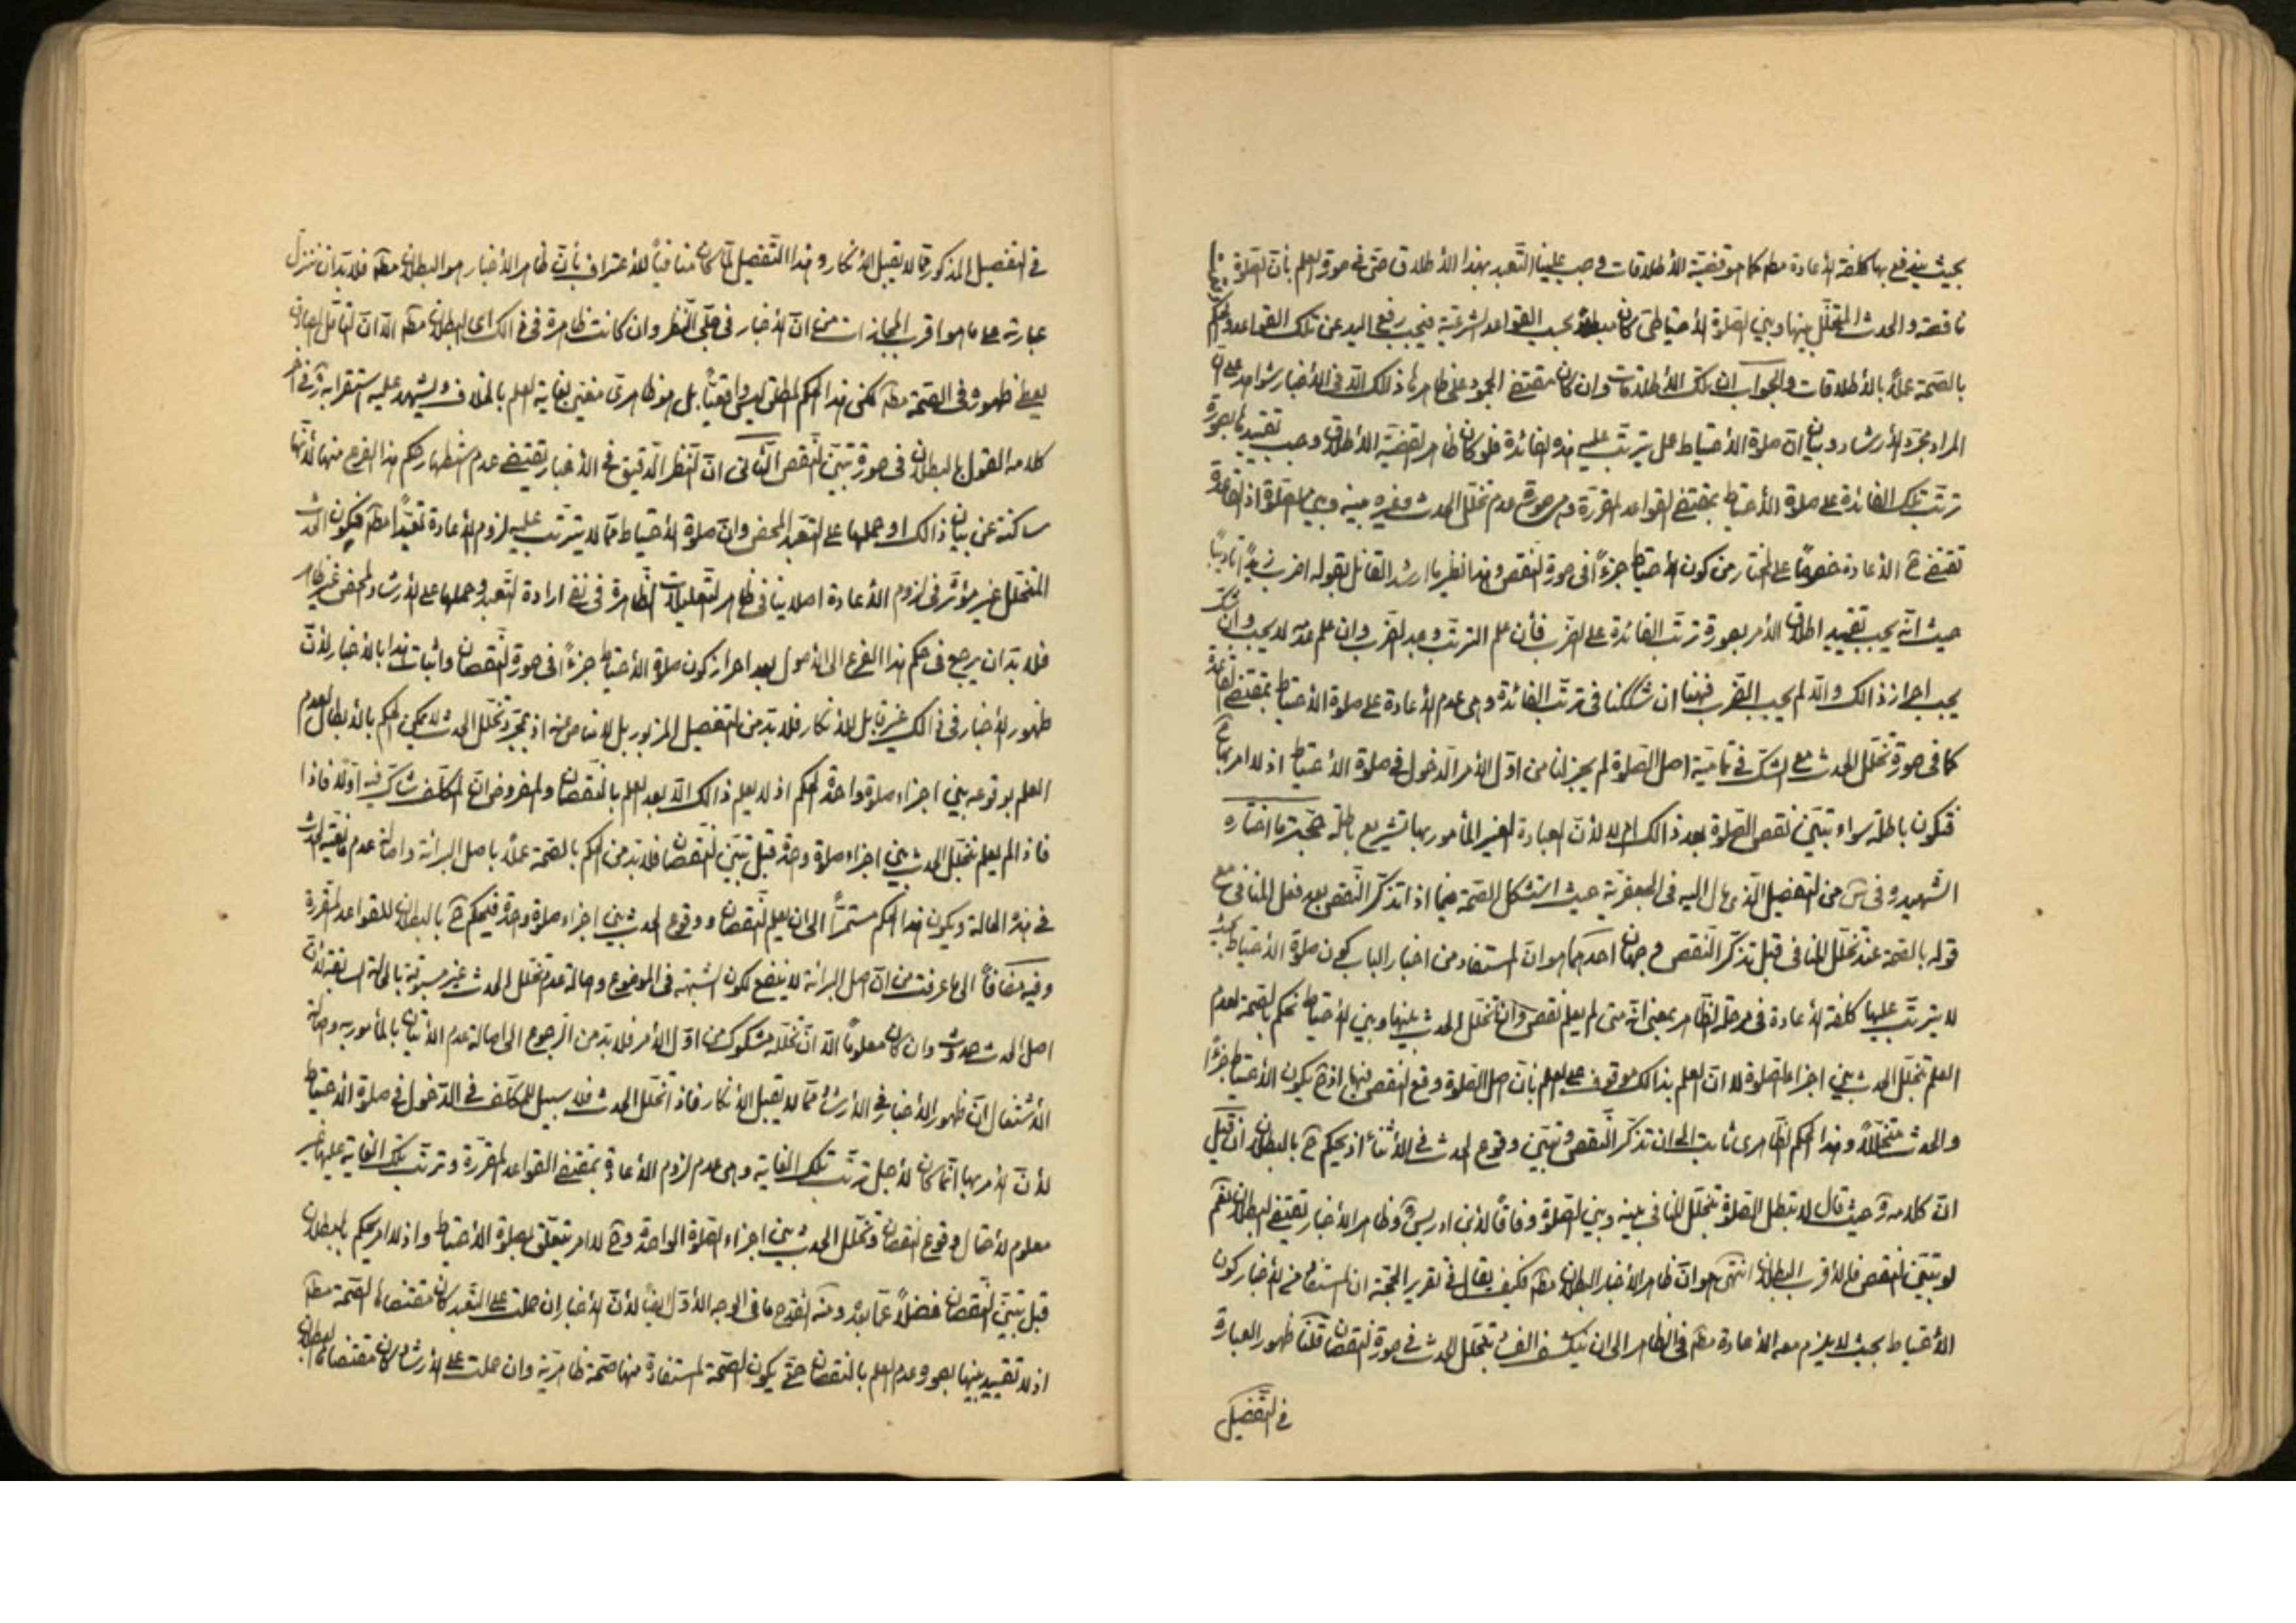 بحيث يندفع بها كلفة الأعادة مطلقا كما هو قضيّة الأطلاقات وجب علينا التّعبد بهذا الأطلاق حتى فى صورة العلم بأنّ الصّلوة
ناقصة والحدث المتخلّل بينها وبين الصّلوة الأحتياطى كان مبطلاً بحسب القواعد الشرعيّة فيجب رفع اليد عن تلك القواعد والحكم
بالصّحة عملاً بالأطلاقات والجواب ان تلك الأطلاقات وان كان مقتضى الجمود على ظاهرها ذلك الّا انّ فى الأخبار شواهد على انّ
المراد مجرّد الأرشاد وبيان انّ صلوة الأحتياط عمل يترتّب عليه هذه الفائدة فلو كان ظاهر القضيّة الأطلاق وجب تقييدها بصورة
ترتّب تلك الفائدة على صلوة الأحتياط بمقتضى القواعد المقرّرة وهى صورة عدم تخلّل الحدث وغيره بينه وبين الصلوة اذ القاعدة
تقتضى ح الأعادة خصوصًا على المختار من كون الأحتياط جزءًا فى صورة النّقص وهذا نظير ما ارشد القائل بقوله اضرب زيدًا تأديبًا
حيث انّه يجب تقييد اطلاق الأمر بصورة ترتّب الفائدة على الضّرب فأن علم الترتّب وجب الضّرب وان علم عدمه لا يجب وان شكّ
يجب احراز ذالك والّا لم يجب الضّرب فهنا ان شككنا فى ترتّب الفائدة وهى عدم الأعادة على صلوة الأحتياط بمقتضى القاعدة
كما فى صورة تخلّل الحدث مع الشكّ فى تماميّة اصل الصّلوة لم يجز لنا من اوّل الأمر الدّخول فى صلوة الأحتياط اذ لا امر بها ح
فتكون باطلة سواء تبيّن نقص الصّلوة بعد ذالك ام لا لأنّ العبادة الغير المأمور بها تشريع باطلة حجّة ما اختاره
الشّهيد ره فى س من التفصيل الّذى مال اليه فى الجعفريّة حيث استشكل الصّحة فيما اذا تذكّر النّقص بعد فعل المنافى مع
قوله بالصّحة عند تخلّل المنافى قبل تذكّر النّقص وجهان احدهما هو انّ المستفاد من اخبار الباب كون صلوة الأحتياط بحيث
لا يترتّب عليها كلفة الأعادة فى مرحلة الظّاهر بمعنى انّه متى لم يعلم نقص وان تخلّل الحدث بينها وبين الأحتياط نحكم بالصّحة لعدم
العلم بتخلّل الحدث بين اجزاء الصّلوة لانّ العلم بذالك موقوف على العلم بأنّ اصل الصّلوة وقع النّقص فيها اذ ح يكون الأحتياط جزءًا
والحدث متخلّلاً وهذا الحكم الظّاهرى ثابت الى ان تذكّر النّقص وتبيّن وقوع الحدث فى الأثناء اذ يحكم ح بالبطلان ان قيل
انّ كلامه ره حيث قال لا تبطل الصّلوة بتخلّل المنافى بينه وبين الصّلوة وفاقًا لأبن ادريس ره وظاهر الأخبار تقتضى البطلان نعم
لو تبيّن النّقص فالأقرب البطلان انتهى هو انّ ظاهر الأخبار البطلان مطلقا فكيف يقال فى تقرير الحجّة ان المستفاد من الأخبار كون
الأحتياط بحيث لا يلزم معه الأعادة مطلقا فى الظّاهر الى ان ينكشف الفساد بتخلّل الحدث فى صورة النقصان قلنا ظهور العبارة
فى التّفصيل
فى التفصيل المذكور ممّا لا يقبل الأنكار وهذا التّفصيل لمّا كان منافيًا للأعتراف بأنّ ظاهر الأخبار هو البطلان مطلقا فلا بدّ ان ننزل
عبارته على ما هو اقرب المجازات من انّ الأخبار فى جلّى النّظر وان كانت ظاهرة فى ذالك اى البطلان مطلقا الّا انّ التأمّل الصادق
يعطى ظهوره فى الصّحة مطلقا لكن هذا الحكم المطلق ليس واقعيّاً بل هو ظاهرى مغيّى بغاية العلم بالخلاف ويشهد عليه استقرابه فى آخر
كلامه القول بالبطلان فى صورة تبيّن النّقص الثّانى انّ النّظر الدّقيق فى الأخبار يقتضى عدم استظهار حكم هذا الفرع منها لأنّها
ساكتة عن بيان ذالك او حملها على التعبّد المحض وانّ صلوة الأحتياط ممّا لا يترتّب عليه لزوم الأعادة تعبّدًا مطلقا فيكون الحدث
المتخلّل غير مؤثّر فى لزوم الأعادة اصلا ينافى ظاهر التّعليلات الظّاهرة فى نفى ارادة التّعبد وحملها على الأرشاد المحض غير ظاهر
فلا بدّ ان يرجع فى حكم هذا الفرع الى الأصول بعد احراز كون صلوة الأحتياط جزءًا فى صورة النّقصان واثبات هذا بالأخبار لأنّ
ظهور الأخبار فى ذالك غير قابل للأنكار فلا بدّ من التفصيل المزبور بل لا مناص عنه اذ بمجرّد تخلّل الحدث لا يمكن الحكم بالأبطال لعدم
العلم بوقوعه بين اجزاء صلوة واحدة الحكم اذ لا يعلم ذالك الّا بعد العلم بالنّقصان والمفروض انّ المكلّف شاكّ فيه اوّلاً فاذا
فاذا لم يعلم تخلّل الحدث بين اجزاء صلوة واحدة قبل تبيّن النّقصان فلا بدّ من الحكم بالصّحة عملاً باصل البرائة واصالة عدم مانعيّة الحدث
فى هذه الحالة ويكون هذا الحكم مستمرًّا الى ان يعلم النّقصان ووقوع الحدث بين اجزاء صلوة واحدة فيحكم ح بالبطلان للقواعد المقرّرة
وفيه مضافًا الى ما عرفت من انّ اصل البرائة لا ينفع لكون الشبهة فى الموضوع واصالة عدم تخلّل الحدث غير مسبوقة بالحالة السابقة لأنّ
اصل الحدث حدوثه وان كان معلومًا الّا انّ تخلّله مشكوك من اوّل الأمر فلا بدّ من الرّجوع الى اصالة عدم الأتيان بالمأمور به واصالة
الأشتغال انّ ظهور الأخبار فى الأرشاد ممّا لا يقبل الأنكار فاذا تخلّل الحدث فلا سبيل للمكلّف فى الدّخول فى صلوة الأحتياط
لأنّ الأمر بها انّما كان لأجل ترتّب تلك الغاية وهى عدم لزوم الأعادة بمقتضى القواعد المقرّرة وترتّب تلك الغاية عليها غير
معلوم لأحتمال وقوع النقصان وتخلّل الحدث بين اجزاء الصّلوة الواحدة وح لا امر يتعلّق بصلوة الأحتياط واذ لا امر يحكم بالبطلان
قبل تبيّن النّقصان فضلاً عمّا بعده ومنه انقدح ما فى الوجه الأوّل ايضًا لأنّ الأخبار ان حملت على التّعبد كان مقتضاها الصّحة مطلقا
اذ لا تقييد فيها بصورة عدم العلم بالنقصان حتى يكون الصّحة المستفادة منها صحّة ظاهريّة وان حملت على الأرشاد كان مقتضاها البطلان